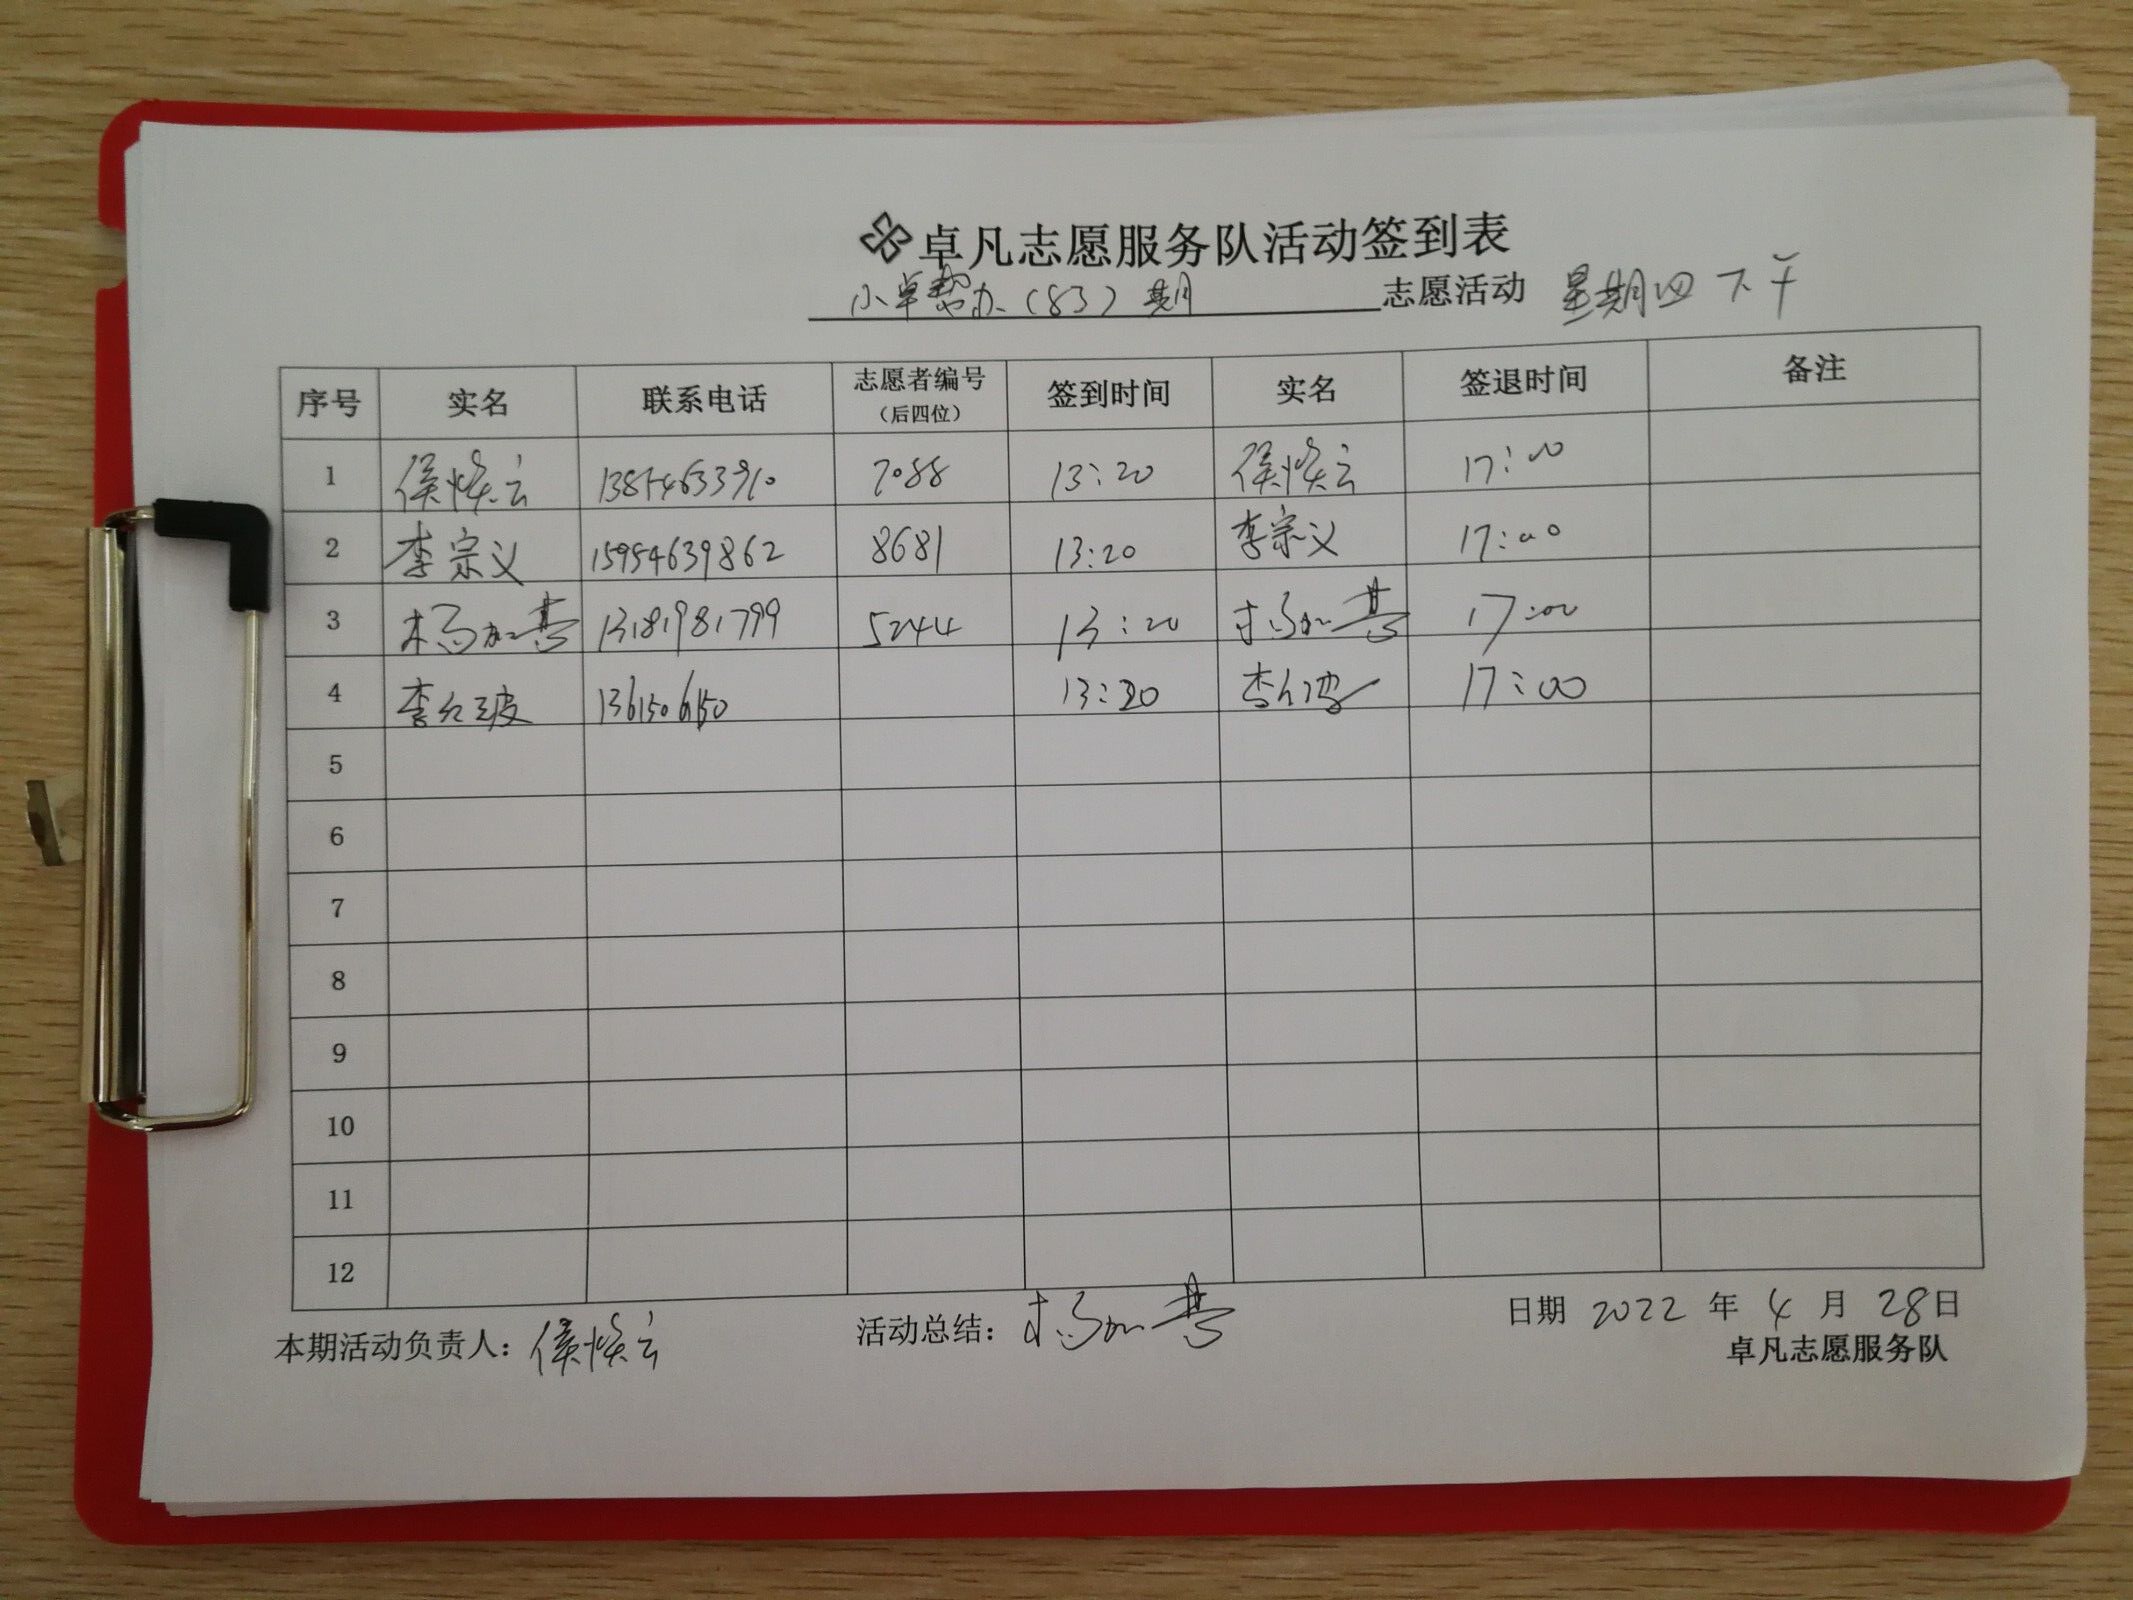 卓凡志愿服务队活动签到表
小卓帮办（83）期 志愿活动 星期四 下午
序号 实名 联系电话 志愿者编号（后四位） 签到时间 实名 签退时间 备注
1 侯焕云 13854633910 7088 13:20 侯焕云 17:00
2 李宗义 15954639862 8681 13:20 李宗义 17:00
3 杨加营 13181981799 5244 13:20 杨加营 17:00
4 李 13:20 李 17:00
5
6
7
8
9
10
11
12
本期活动负责人：侯焕云 活动总结：杨加营 日期 2022 年 4 月 28日
卓凡志愿服务队